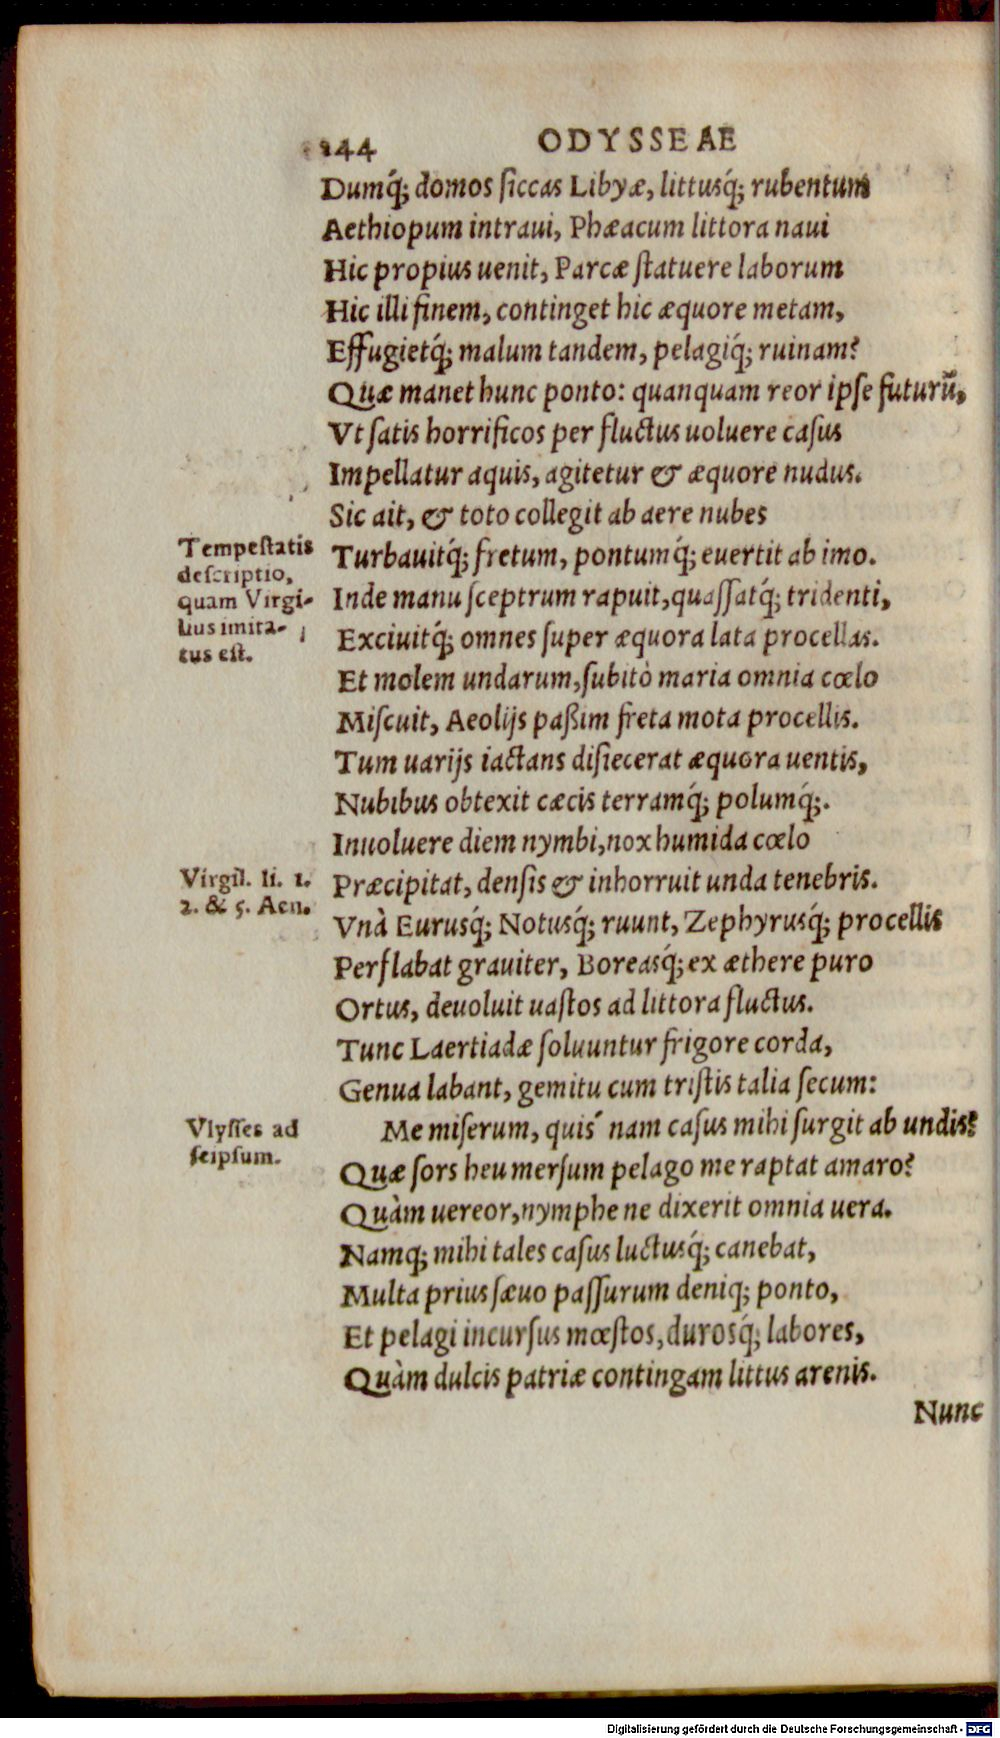 144 ODYSSEAE
Dumq́; domos siccas Libyæ, littusq́; rubentum
Aethiopum intraui, Phæacum littora naui
Hic propius uenit, Parcæ statuere laborum
Hic illi finem, continget hic æquore metam,
Effugietq́; malum tandem, pelagiq́; ruinam?
Quæ manet hunc ponto: quanquam reor ipse futurū,
Vt satis horrificos per fluctus uoluere casus
Impellatur aquis, agitetur & æquore nudus.
Sic ait, & toto collegit ab aere nubes
Tempestatis
descriptio,
quam Virgi-
lius imita-
tus est.
Turbauitq́; fretum, pontumq́; euertit ab imo.
Inde manu sceptrum rapuit, quassatq́; tridenti,
Exciuitq́; omnes super æquora lata procellas.
Et molem undarum, subitò maria omnia cœlo
Miscuit, Aeolijs paßim freta mota procellis.
Tum uarijs iactans disiecerat æquora uentis,
Nubibus obtexit cæcis terramq́; polumq́;.
Inuoluere diem nymbi, nox humida cœlo
Virgil. li. 1.
2. & 5. Aen.
Præcipitat, densis & inhorruit unda tenebris.
Vnà Eurusq́; Notusq́; ruunt, Zephyrusq́; procellis
Perflabat grauiter, Boreasq́; ex æthere puro
Ortus, deuoluit uastos ad littora fluctus.
Tunc Laertiadæ soluuntur frigore corda,
Genua labant, gemitu cum tristis talia secum:
Vlysses ad
seipsum.
Me miserum, quis nam casus mihi surgit ab undis?
Quæ sors heu mersum pelago me raptat amaro?
Quàm uereor, nymphe ne dixerit omnia uera.
Namq; mihi tales casus luctusq́; canebat,
Multa prius sæuo passurum deniq; ponto,
Et pelagi incursus mœstos, durosq́; labores,
Quàm dulcis patriæ contingam littus arenis.
Nunc
Digitalisierung gefördert durch die Deutsche Forschungsgemeinschaft - DFG